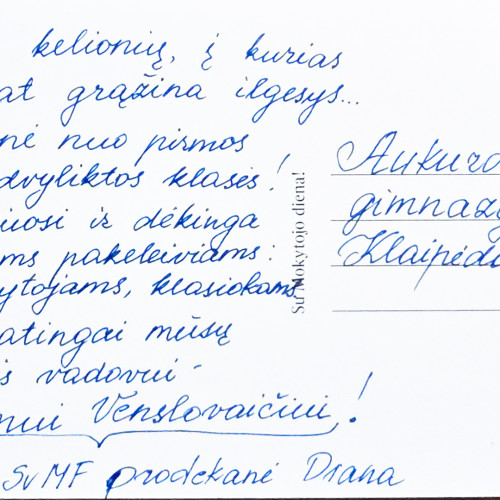 kelionių, į kurias
at grąžina ilgesys...
nė nuo pirmos
dvyliktos klasės!
uosi ir dėkinga
ms pakeleiviams:
ytojams, klasiokams
atingai mūsų
is vadovui -
nui Venslovaičiui!
SvMF prodekanė Diana
Su Mokytojo diena!
Aukuro
gimnazi
Klaipėdo